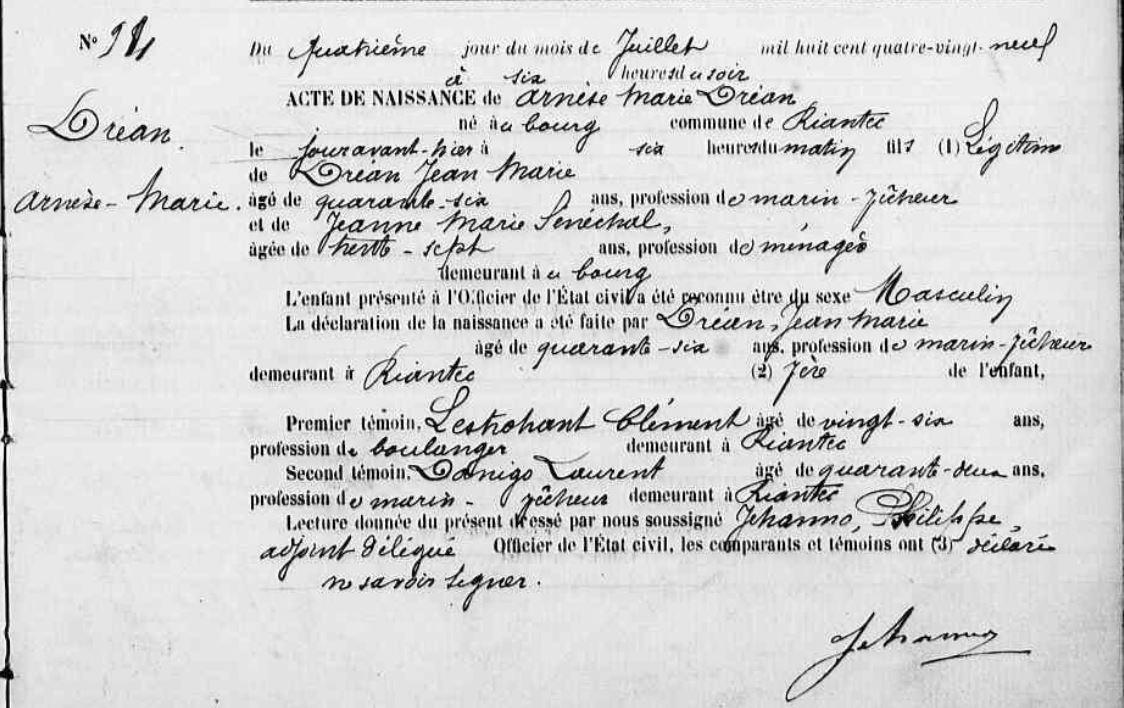 N° 94
Du Quatrième jour du mois de Juillet mil huit cent quatre-vingt-neuf
à six heures du soir
ACTE DE NAISSANCE de Arnèse Marie Dréan
Dréan.
né àu bourg commune de Riantec
le jour avant-hier à six heures du matin fils (1) Légitime
de Dréan Jean Marie
Arnèse-Marie.
âgé de quarante-six ans, profession de marin-pêcheur
et de Jeanne Marie Sénéchal,
âgée de trente-sept ans, profession de ménagère
demeurant àu bourg
L'enfant présenté à l'Officier de l'État civil a été reconnu être du sexe Masculin
La déclaration de la naissance a été faite par Dréan, Jean Marie
âgé de quarante-six ans, profession de marin-pêcheur
demeurant à Riantec (2) père de l'enfant,
Premier témoin, Lestrohant Clément âgé de vingt-six ans,
profession de boulanger demeurant à Riantec
Second témoin, Danigo Laurent âgé de quarante-deux ans,
profession de marin-pêcheur demeurant à Riantec
Lecture donnée du présent dressé par nous soussigné Jehanno, Philippe,
adjoint délégué Officier de l'État civil, les comparants et témoins ont (3) déclaré
ne savoir signer.
Jehanno